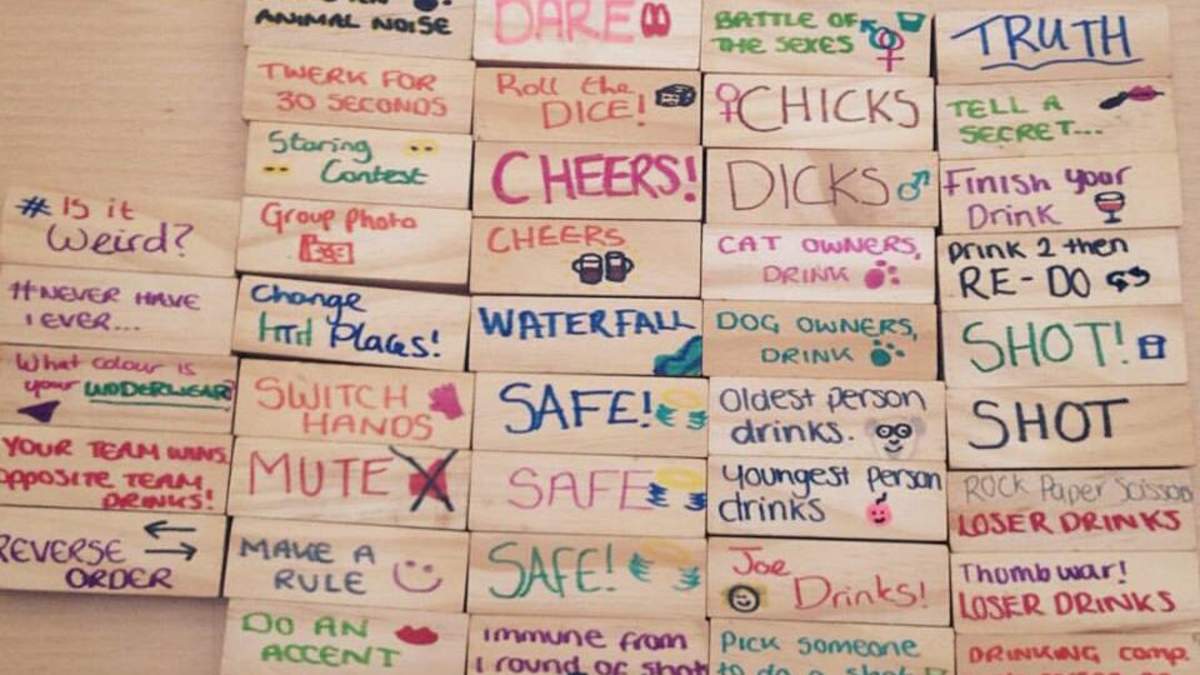 # IS it
Weird?
#NEVER HAVE
I EVER...
What colour is
your UNDERWEAR?
YOUR TEAM WINS,
OPPOSITE TEAM
DRINKS!
REVERSE
ORDER
ANIMAL NOISE
TWERK FOR
30 SECONDS
Staring
Contest
Group Photo
Change
Places!
SWITCH
HANDS
MUTE
MAKE A
RULE
DO AN
ACCENT
DARE
Roll the
DICE!
CHEERS!
CHEERS
WATERFALL
SAFE!
SAFE
SAFE!
immune from
1 round of shot
BATTLE OF
THE SEXES
CHICKS
DICKS
CAT OWNERS,
DRINK
DOG OWNERS,
DRINK
Oldest person
drinks.
Youngest person
drinks
Joe
Drinks!
Pick someone
to do a shot
TRUTH
TELL A
SECRET...
Finish your
Drink
Drink 2 then
RE-DO
SHOT!
SHOT
ROCK Paper Scissor
LOSER DRINKS
Thumb war!
LOSER DRINKS
DRINKING comp.